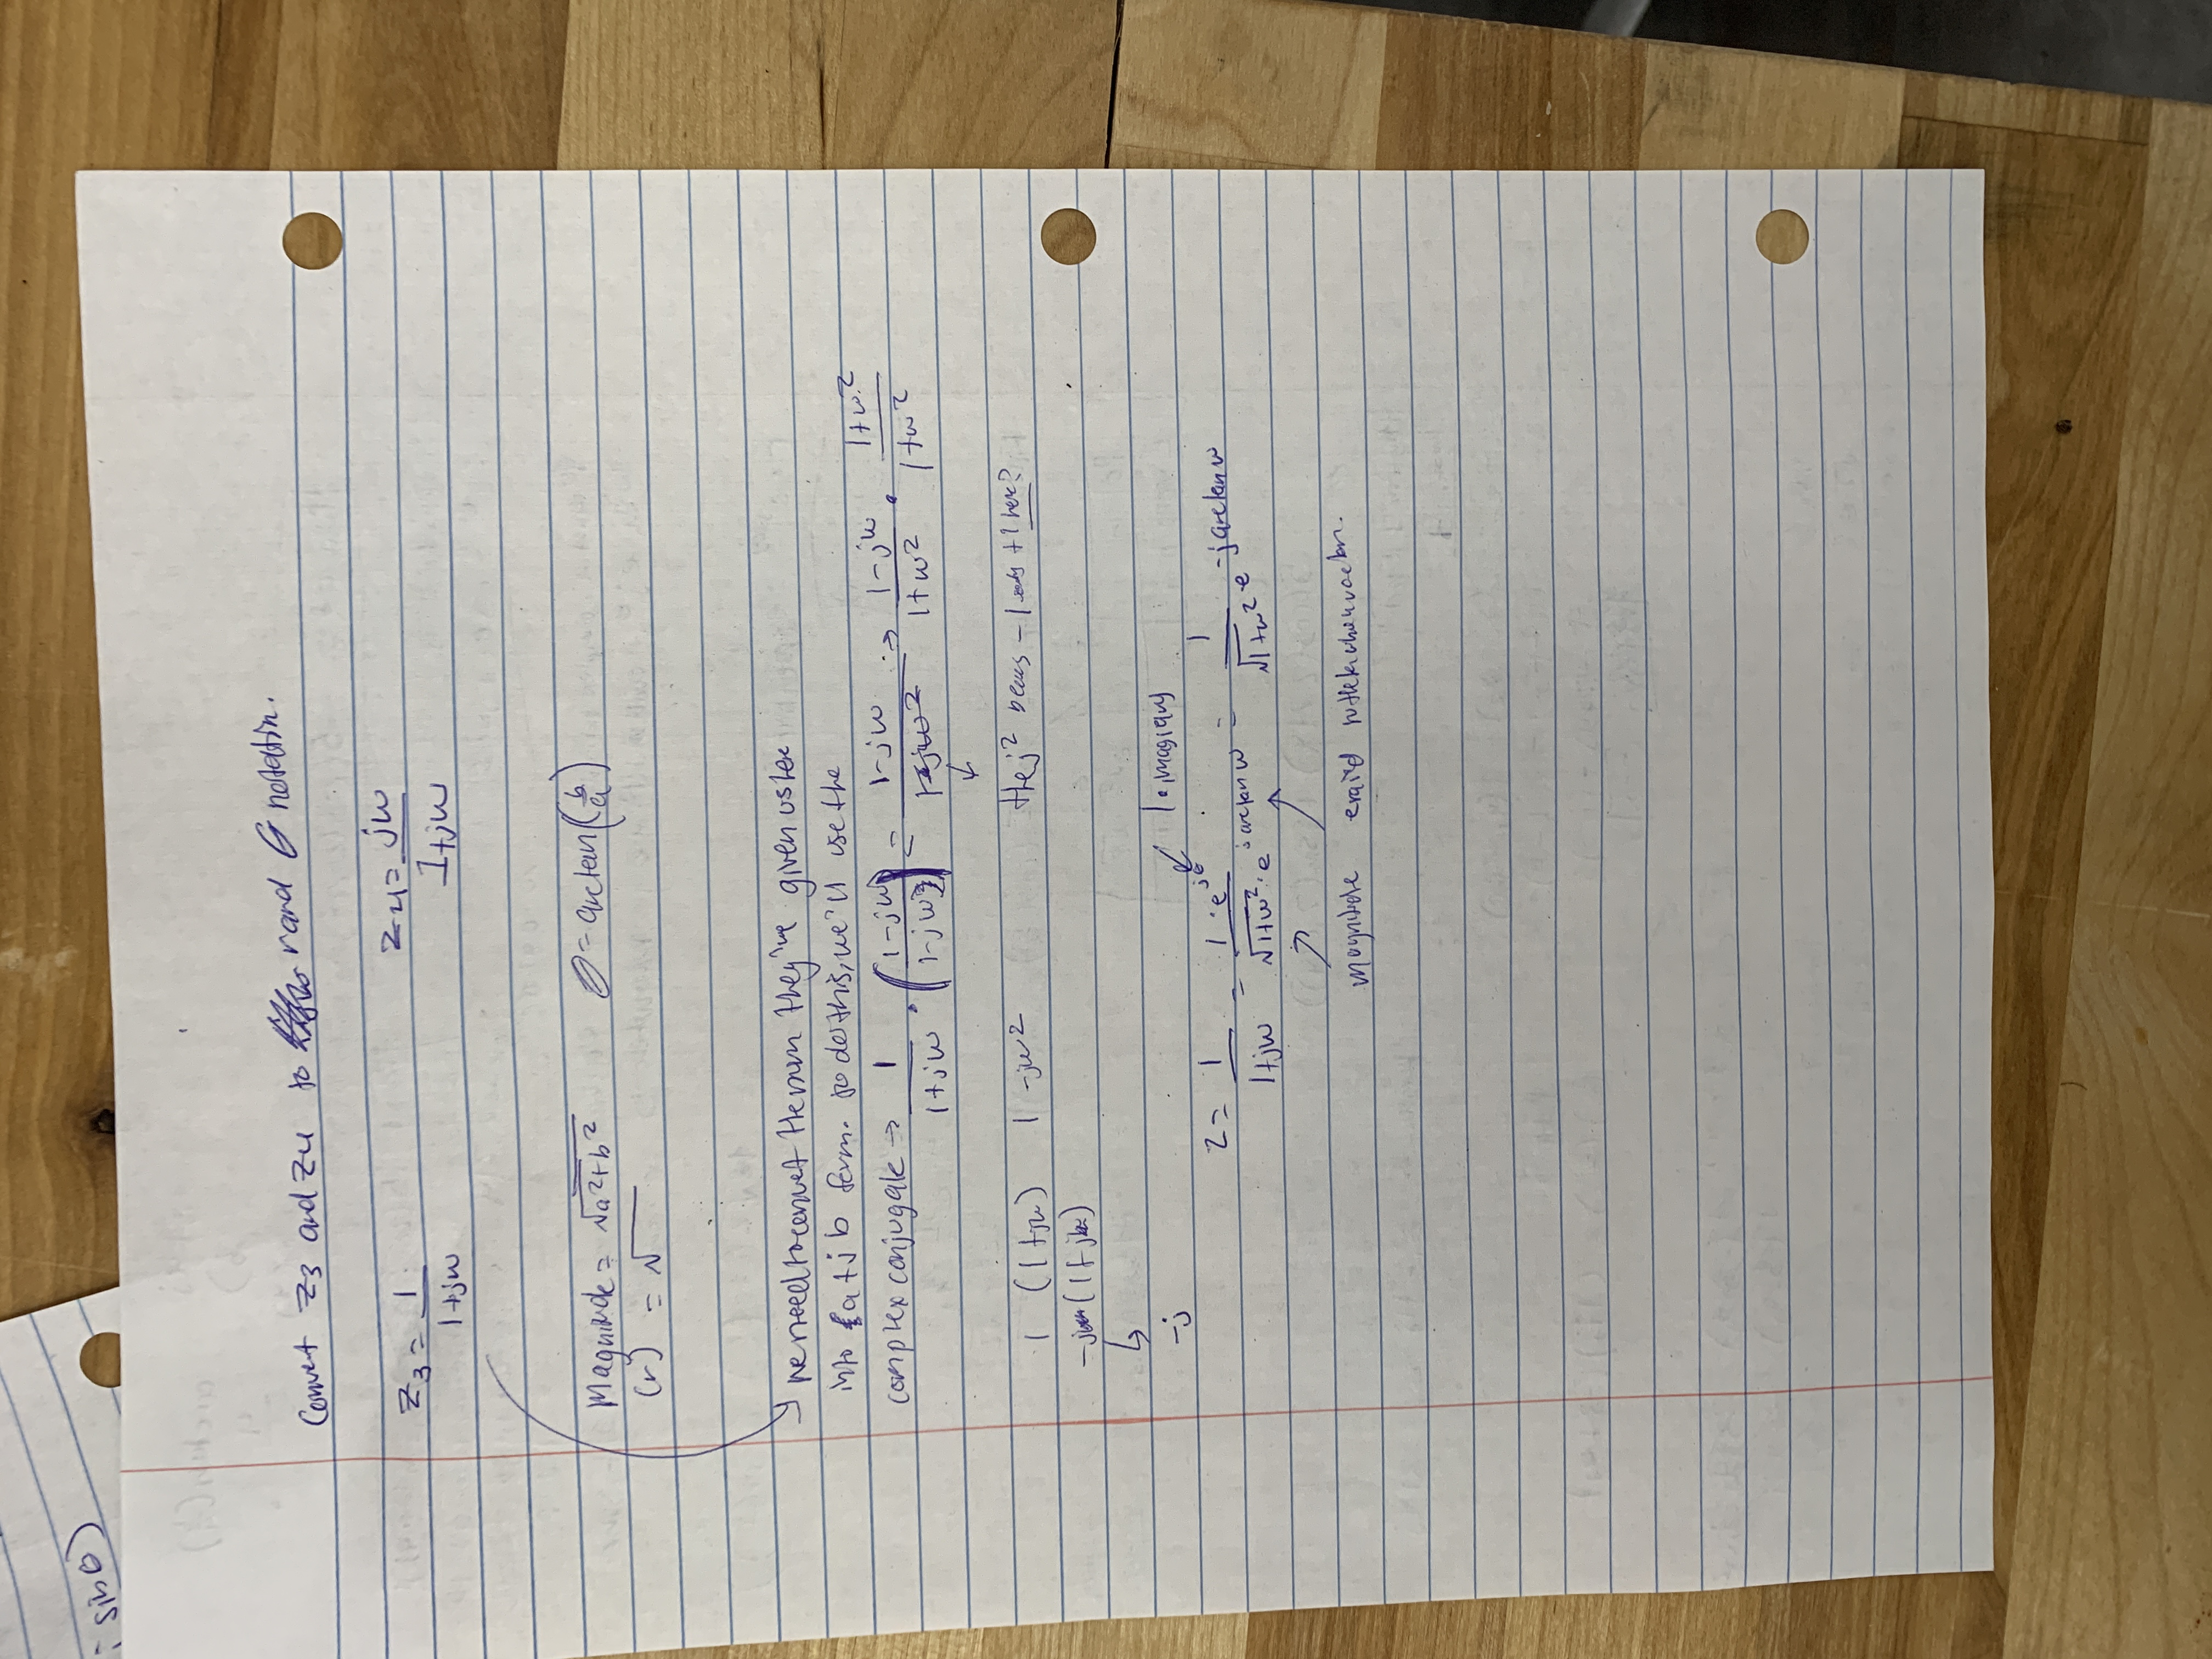 i sinθ)
Convert Z3 and Z4 to r and θ notatin.
Z3 = 1/(1+jω)    Z4 = jω/(1+jω)
Magnitude = √(a²+b²)    θ = arctan(b/a)
(r) = √
we need to convert the num they've given us here
into a+jb form. to do this, we'll use the
complex conjugate → 1/(1+jω) · ((1-jω)/(1-jω)) = (1-jω)/(1-jω²) → (1-jω)/(1+ω²) · (1+ω²)/(1+ω²)
↙
1 (1+jω)    1 -jω²    the j² becomes -1 +1 here?
-jω(1+jω)
↳
-j
1 · imaginary
Z = 1/(1+jω) = 1·e^jθ/(√(1+ω²)·e^(j arctan ω)) = 1/√(1+ω²) · e^(-j arctan ω)
magnitude